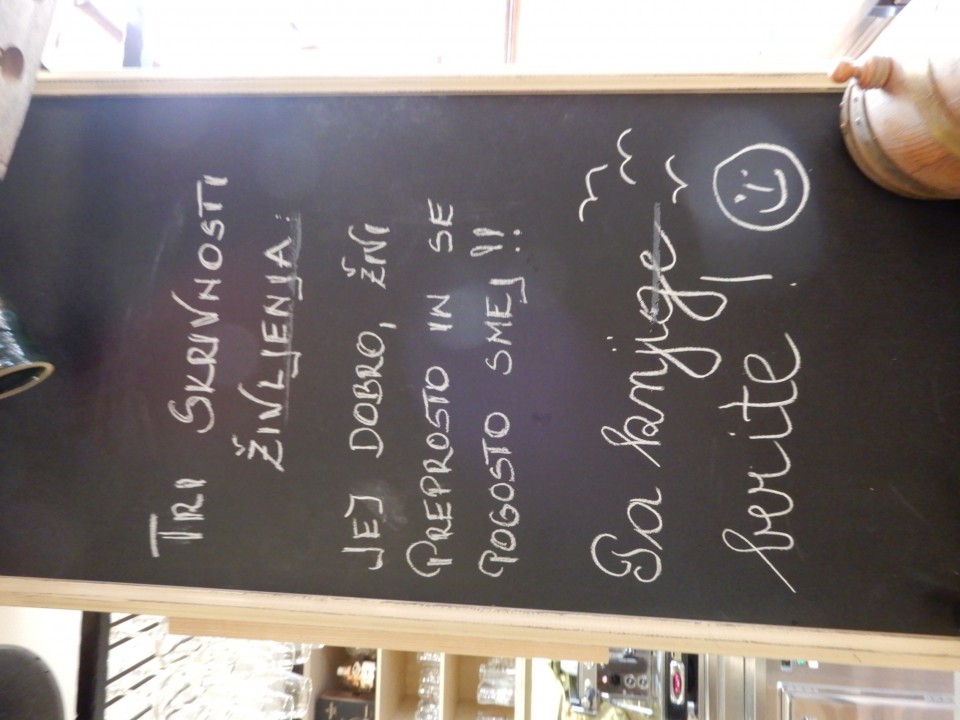 TRI SKRIVNOSTI
ŽIVLJENJA:
JEJ DOBRO, ŽIVI
PREPROSTO IN SE
POGOSTO SMEJ!!
Pa knjige
berite!